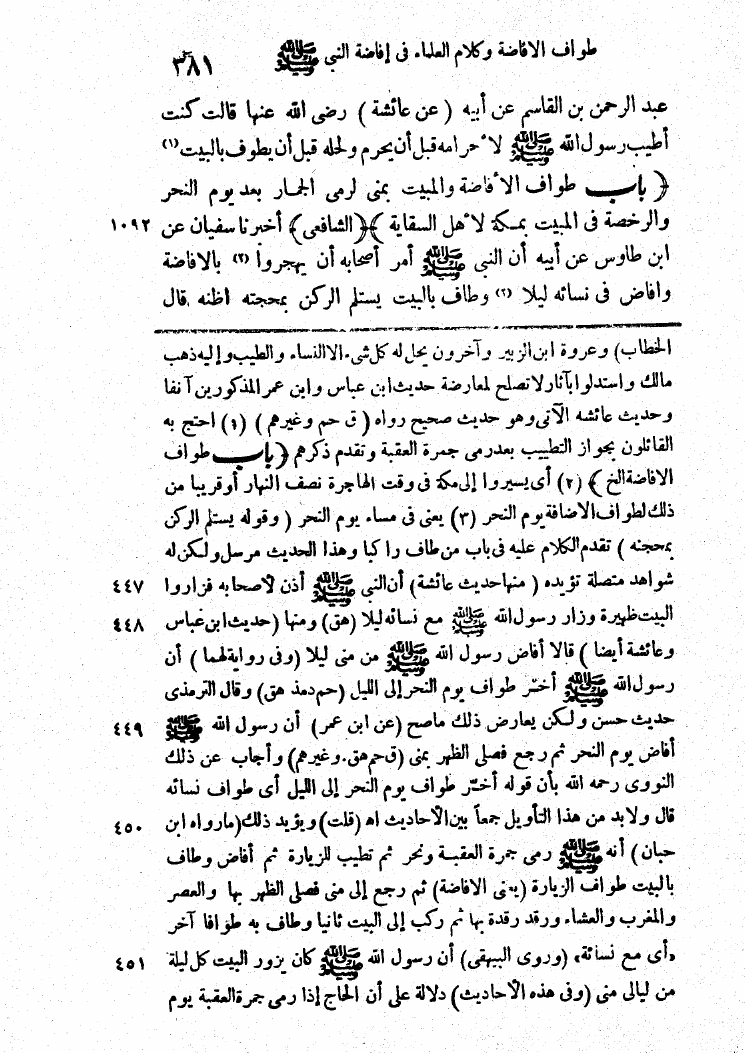 طواف الافاضة وكلام العلماء فى إفاضة النبي ﷺ ٣٨١
عبد الرحمن بن القاسم عن أبيه ( عن عائشة ) رضى الله عنها قالت كنت
أطيب رسول الله ﷺ لأحرامه قبل أن يحرم ولحله قبل أن يطوف بالبيت (١)
﴿ باب طواف الأفاضة والمبيت بمنى لرمى الجمار بعد يوم النحر
والرخصة فى المبيت بمكة لأهل السقاية ﴾ ﴿ الشافعى ﴾ أخبرنا سفيان عن ١٠٩٢
ابن طاوس عن أبيه أن النبي ﷺ أمر أصحابه أن يهجروا (٢) بالافاضة
وافاض فى نسائه ليلا (٣) وطاف بالبيت يستلم الركن بمحجنه اظنه قال
الخطاب) وعروة ابن الزبير وآخرون يحل له كل شىء الا النساء والطيب وإليه ذهب
مالك واستدلوا بآثار لا تصلح لمعارضة حديث ابن عباس وابن عمر المذكورين آنفا
وحديث عائشه الآتى وهو حديث صحيح رواه ( ق حم وغيرهم ) (١) احتج به
القائلون بجواز التطيب بعد رمى جمرة العقبة وتقدم ذكرهم ﴿ باب طواف
الافاضة الخ ﴾ (٢) أى يسيروا إلى مكة فى وقت الهاجرة نصف النهار أو قريبا من
ذلك لطواف الاضافة يوم النحر (٣) يعنى فى مساء يوم النحر ( وقوله يستلم الركن
بمحجنه ) تقدم الكلام عليه فى باب من طاف راكبا وهذا الحديث مرسل ولكن له
شواهد متصلة تؤيده ( منها حديث عائشة) أن النبي ﷺ أذن لأصحابه فزاروا ٤٤٧
البيت ظهيرة وزار رسول الله ﷺ مع نسائه ليلا (هق) ومنها (حديث ابن عباس ٤٤٨
وعائشة أيضا ) قالا أفاض رسول الله ﷺ من منى ليلا (وفى رواية لهما ) أن
رسول الله ﷺ أخر طواف يوم النحر إلى الليل (حم دمذ هق) وقال الترمذى
حديث حسن ولكن يعارض ذلك ما صح (عن ابن عمر) أن رسول الله ﷺ ٤٤٩
أفاض يوم النحر ثم رجع فصلى الظهر بمنى (ق حم هق. وغيرهم) وأجاب عن ذلك
النووى رحمه الله بأن قوله أخر طواف يوم النحر إلى الليل أى طواف نسائه
قال ولابد من هذا التأويل جمعاً بين الأحاديث اه (قلت) ويؤيد ذلك (مارواه ابن ٤٥٠
حبان) أنه ﷺ رمى جمرة العقبة ونحر ثم تطيب للزيارة ثم أفاض وطاف
بالبيت طواف الزيارة (يعنى الافاضة) ثم رجع إلى منى فصلى الظهر بها والعصر
والمغرب والعشاء ورقد رقدة بها ثم ركب إلى البيت ثانيا وطاف به طوافا آخر
«أى مع نسائة» (وروى البيهقى) أن رسول الله ﷺ كان يزور البيت كل ليلة ٤٥١
من ليالى منى (وفى هذه الأحاديث) دلالة على أن الحاج إذا رمى جمرة العقبة يوم